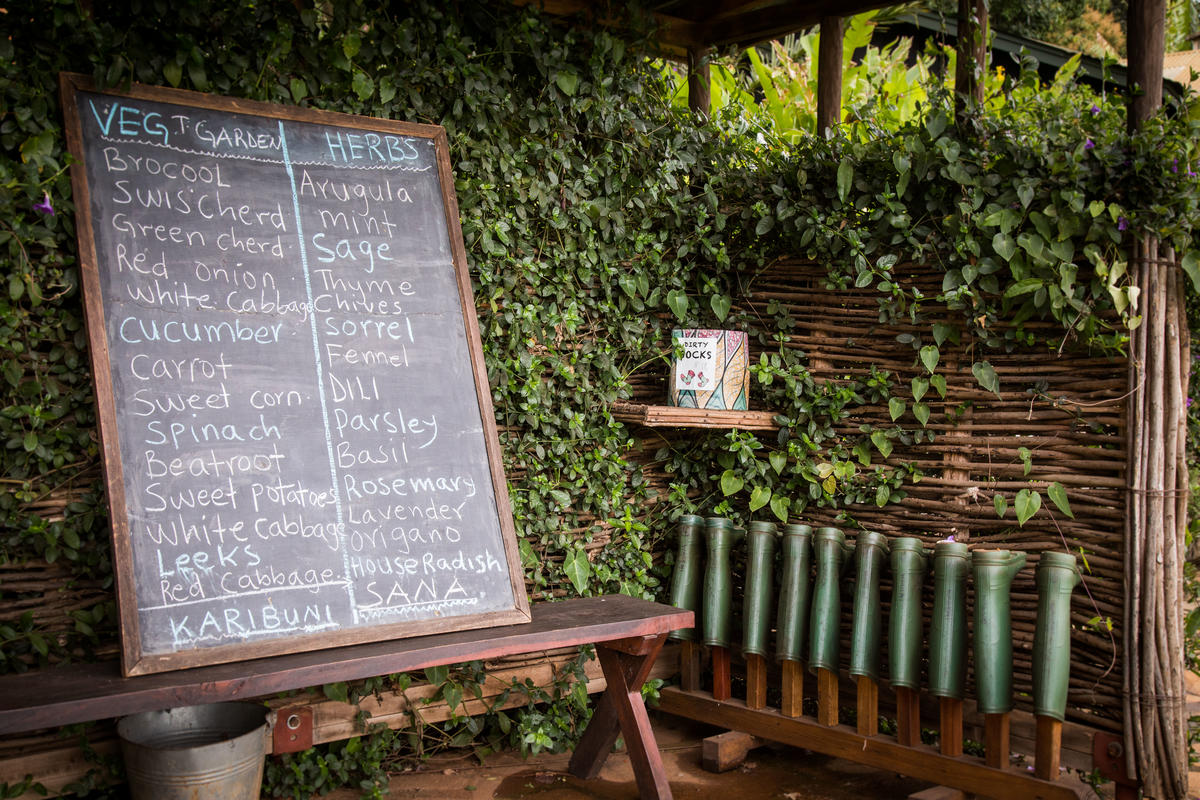 VEG.T. GARDEN
BROCOOL
SWISCherd
Green cherd.
Red onion
white cabbage
cucumber
Carrot
Sweet corn.
Spinach
Beatroot
Sweet potatoes
White cabbage
LeeKS
Red Cabbage
KARIBUNI
HERBS
Arugula
mint
Sage
Thyme
Chives.
Sorrel
Fennel
DILL
parsley
Basil
Rosemary
Lavender
origano
HOUSeRadish
SANA
DIRTY
SOCKS